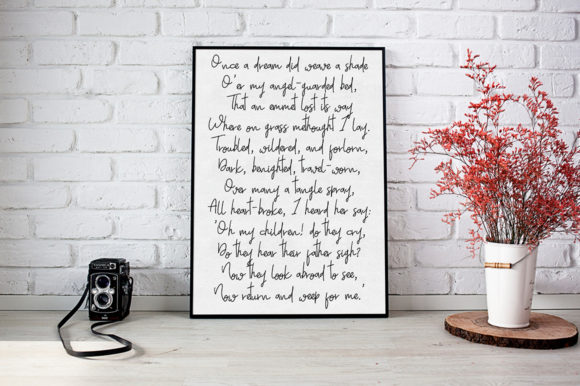 Once a dream did weave a shade
O'er my angel-guarded bed,
That an emmet lost its way
Where on grass methought I lay.
Troubled, wildered, and forlorn,
Dark, benighted, travel-worn,
Over many a tangle spray,
All heart-broke, I heard her say:
'Oh my children! do they cry,
Do they hear their father sigh?
Now they look abroad to see,
Now return and weep for me.'